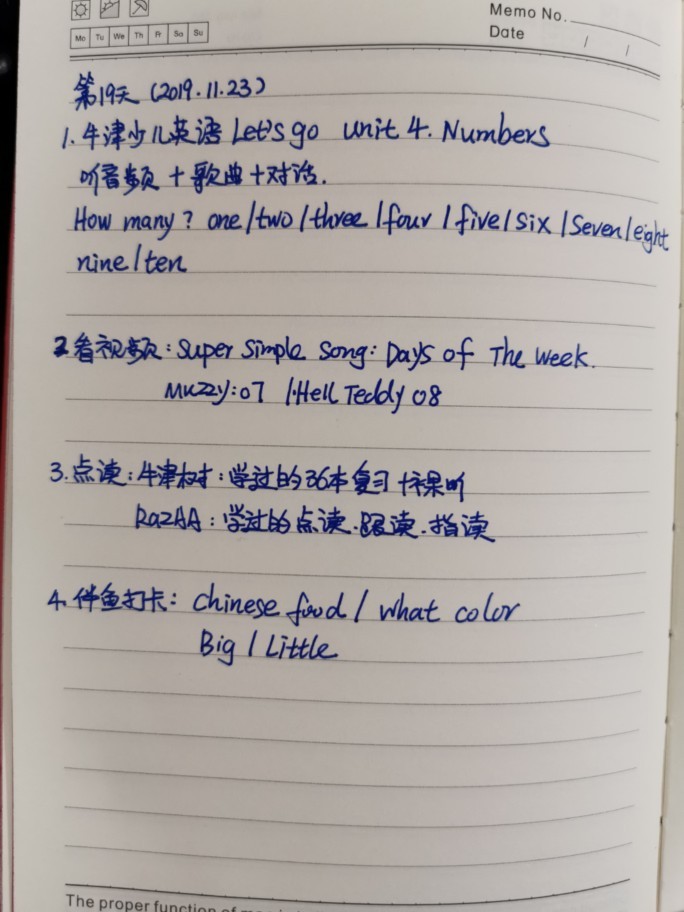 Memo No.
Mo Tu We Th Fr Sa Su
Date / /
第19天 (2019.11.23)
1. 牛津少儿英语 Let's go unit 4. Numbers
听音频 + 歌曲 + 对话.
How many? one/two/three/four/five/six/Seven/eight
nine/ten
2 看视频: Super Simple Song: Days of The week.
Muzzy:07 /Hell Teddy 08
3. 点读: 牛津树: 学过的36本复习+裸听
RazAA: 学过的点读.跟读.指读
4. 伴鱼打卡: Chinese food / what color
Big / Little
The proper function of